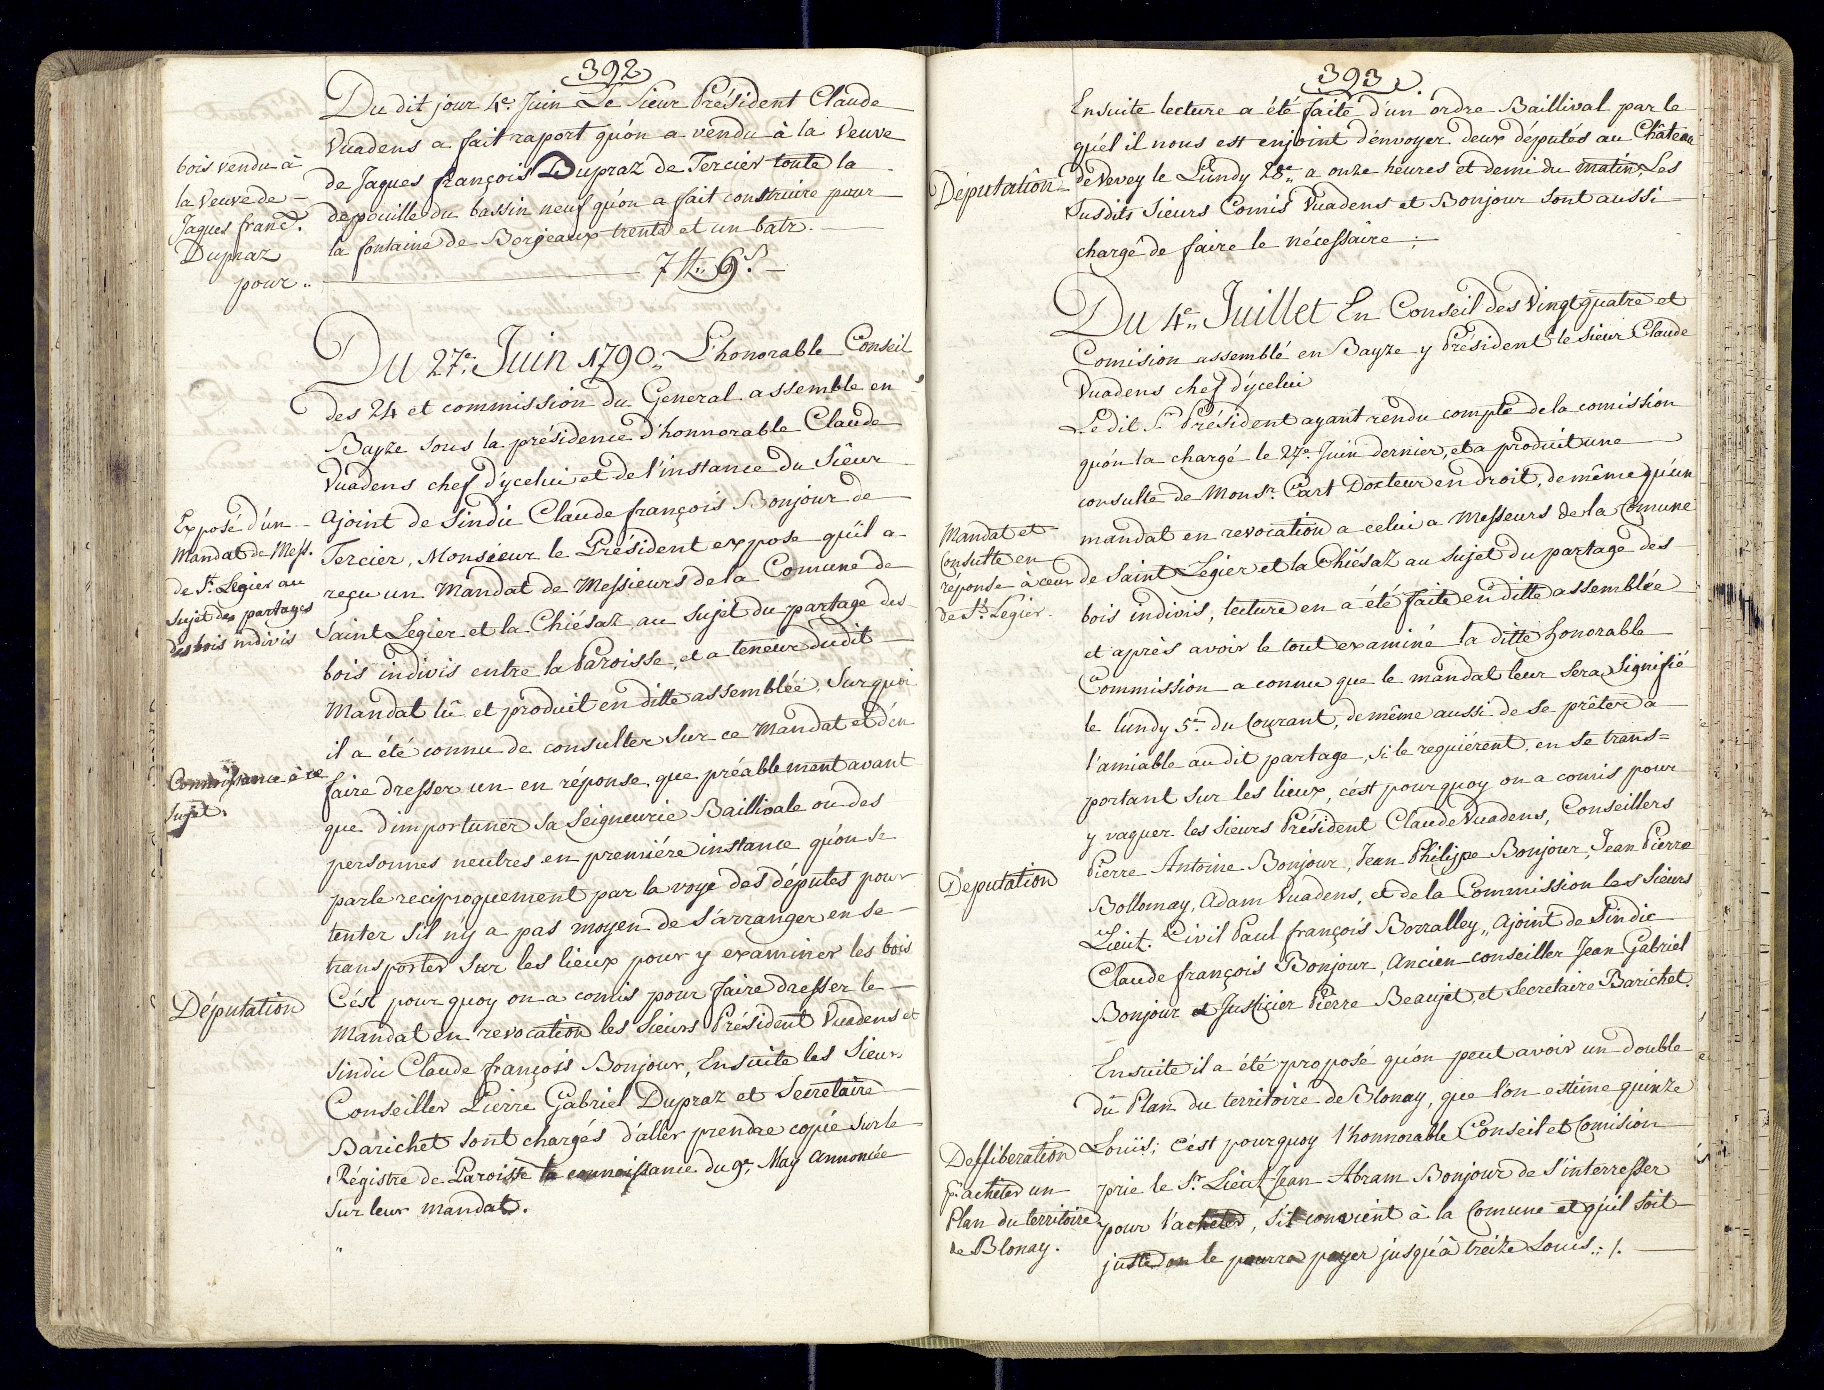 392
Du dit jour 4e. Juin Le Sieur Président Claude
Vuadens a fait raport qu'on a vendu à la Veuve
de Jaques françois Dupraz de Tercier toute la
depouille du bassin neuf qu'on a fait construire pour
la fontaine de Borjeaux trente et un batz.
bois vendu à
la Veuve de
Jaques franc.
Dupraz
pour
Du 27e. Juin 1790. L'honorable Conseil
des 24 et commission du General assemble en
Bayze sous la présidence d'honnorable Claude
Vuadens chef d'ycelui et de l'instance du Sieur
Ajoint de Sindic Claude françois Bonjour de
Tercier, Monsieur le Président expose qu'il a
reçu un Mandat de Messieurs de la Comune de
Saint Legier et la Chiésaz au sujet du partage des
bois indivis entre la Paroisse, et a teneur dudit
Mandat lû et produit en ditte assemblée, Surquoi
il a été connu de consulter sur ce Mandat et d'en
faire dresser un en réponse, que préablement avant
que d'importuner sa Seigneurie Baillivale ou des
personnes neutres en premiére instance qu'on se
parle reciproquement par la voye des députes pour
tenter s'il n'y a pas moyen de s'arranger en se
transporter sur les lieux pour y examiner les bois
C'ést pourquoy on a comis pour faire dresser le
Mandat en revocation les Sieurs Président Vuadens et
Sindic Claude françois Bonjour, Ensuite les Sieurs
Conseiller Pierre Gabriel Dupraz et Secretaire
Barichet sont chargés d'aller prendre copie sur le
Régistre de Paroisse la connoissance du 9e. May annoncée
sur leur mandat.
Exposé d'un
Mandat de Mess.
de St. Legier au
sujet des partages
des bois indivis
Connoissance à ce
sujet.
Députation
393
Ensuite lecture a été faite d'un ordre Baillival par le
quél il nous est enjoint d'envoyer deux députés au Château
de Vevey le Lundy 28e. a onze heures et demi du matin, Les
susdits Sieurs Comis Vuadens et Bonjour sont aussi
chargé de faire le nécessaire.
Députation
Du 4e. Juillet En Conseil des Vingt quatre et
Comision assemblé en Bayze y Président le sieur Claude
Vuadens chef d'ycelui
Le dit Sr. Président ayant rendu compte de la comission
qu'on l'a chargé le 27e. Juin dernier, et a produit une
consulte de Monsr. Cart Docteur en droit, de même qu'un
mandat en revocation a celui a Messeurs de la Comune
de Saint Légier et la Chiésaz au sujet du partage des
bois indivis, lecture en a été faite en ditte assemblée
et après avoir le tout examiné la ditte honorable
Commission a connu que le mandat leur sera signifié
le lundy 5e. du Courant, de même aussi de se prêter a
l'amiable au dit partage, s'ils le requiérent, en se trans=
portant sur les lieux, c'ést pourquoy on a comis pour
y vaquer les Sieurs Président Claude Vuadens, Conseillers
Pierre Antoine Bonjour, Jean Philippe Bonjour, Jean Pierre
Bollomay, Adam Vuadens, et de la Commission les Sieurs
Lieut. Civil Paul françois Borralley, Ajoint de Sindic
Claude françois Bonjour, Ancien conseiller Jean Gabriel
Bonjour et Justicier Pierre Beaujet, et Secretaire Barichet.
Mandat et
Consulte en
réponse à ceux
de St. Légier.
Deputation
Ensuite il a été proposé qu'on peut avoir un double
du Plan du territoire de Blonay, que l'on estime quinze
Louis; C'ést pourquoy l'honnorable Conseil et Comision
prie le Sr. Lieut Jean Abram Bonjour de s'interresser
pour l'acheter, s'il convient à la Comune et qu'il soit
juste on le pourra payer jusqu'à treize Louis.
Dessiberation
pr. acheter un
Plan du territoire
de Blonay.